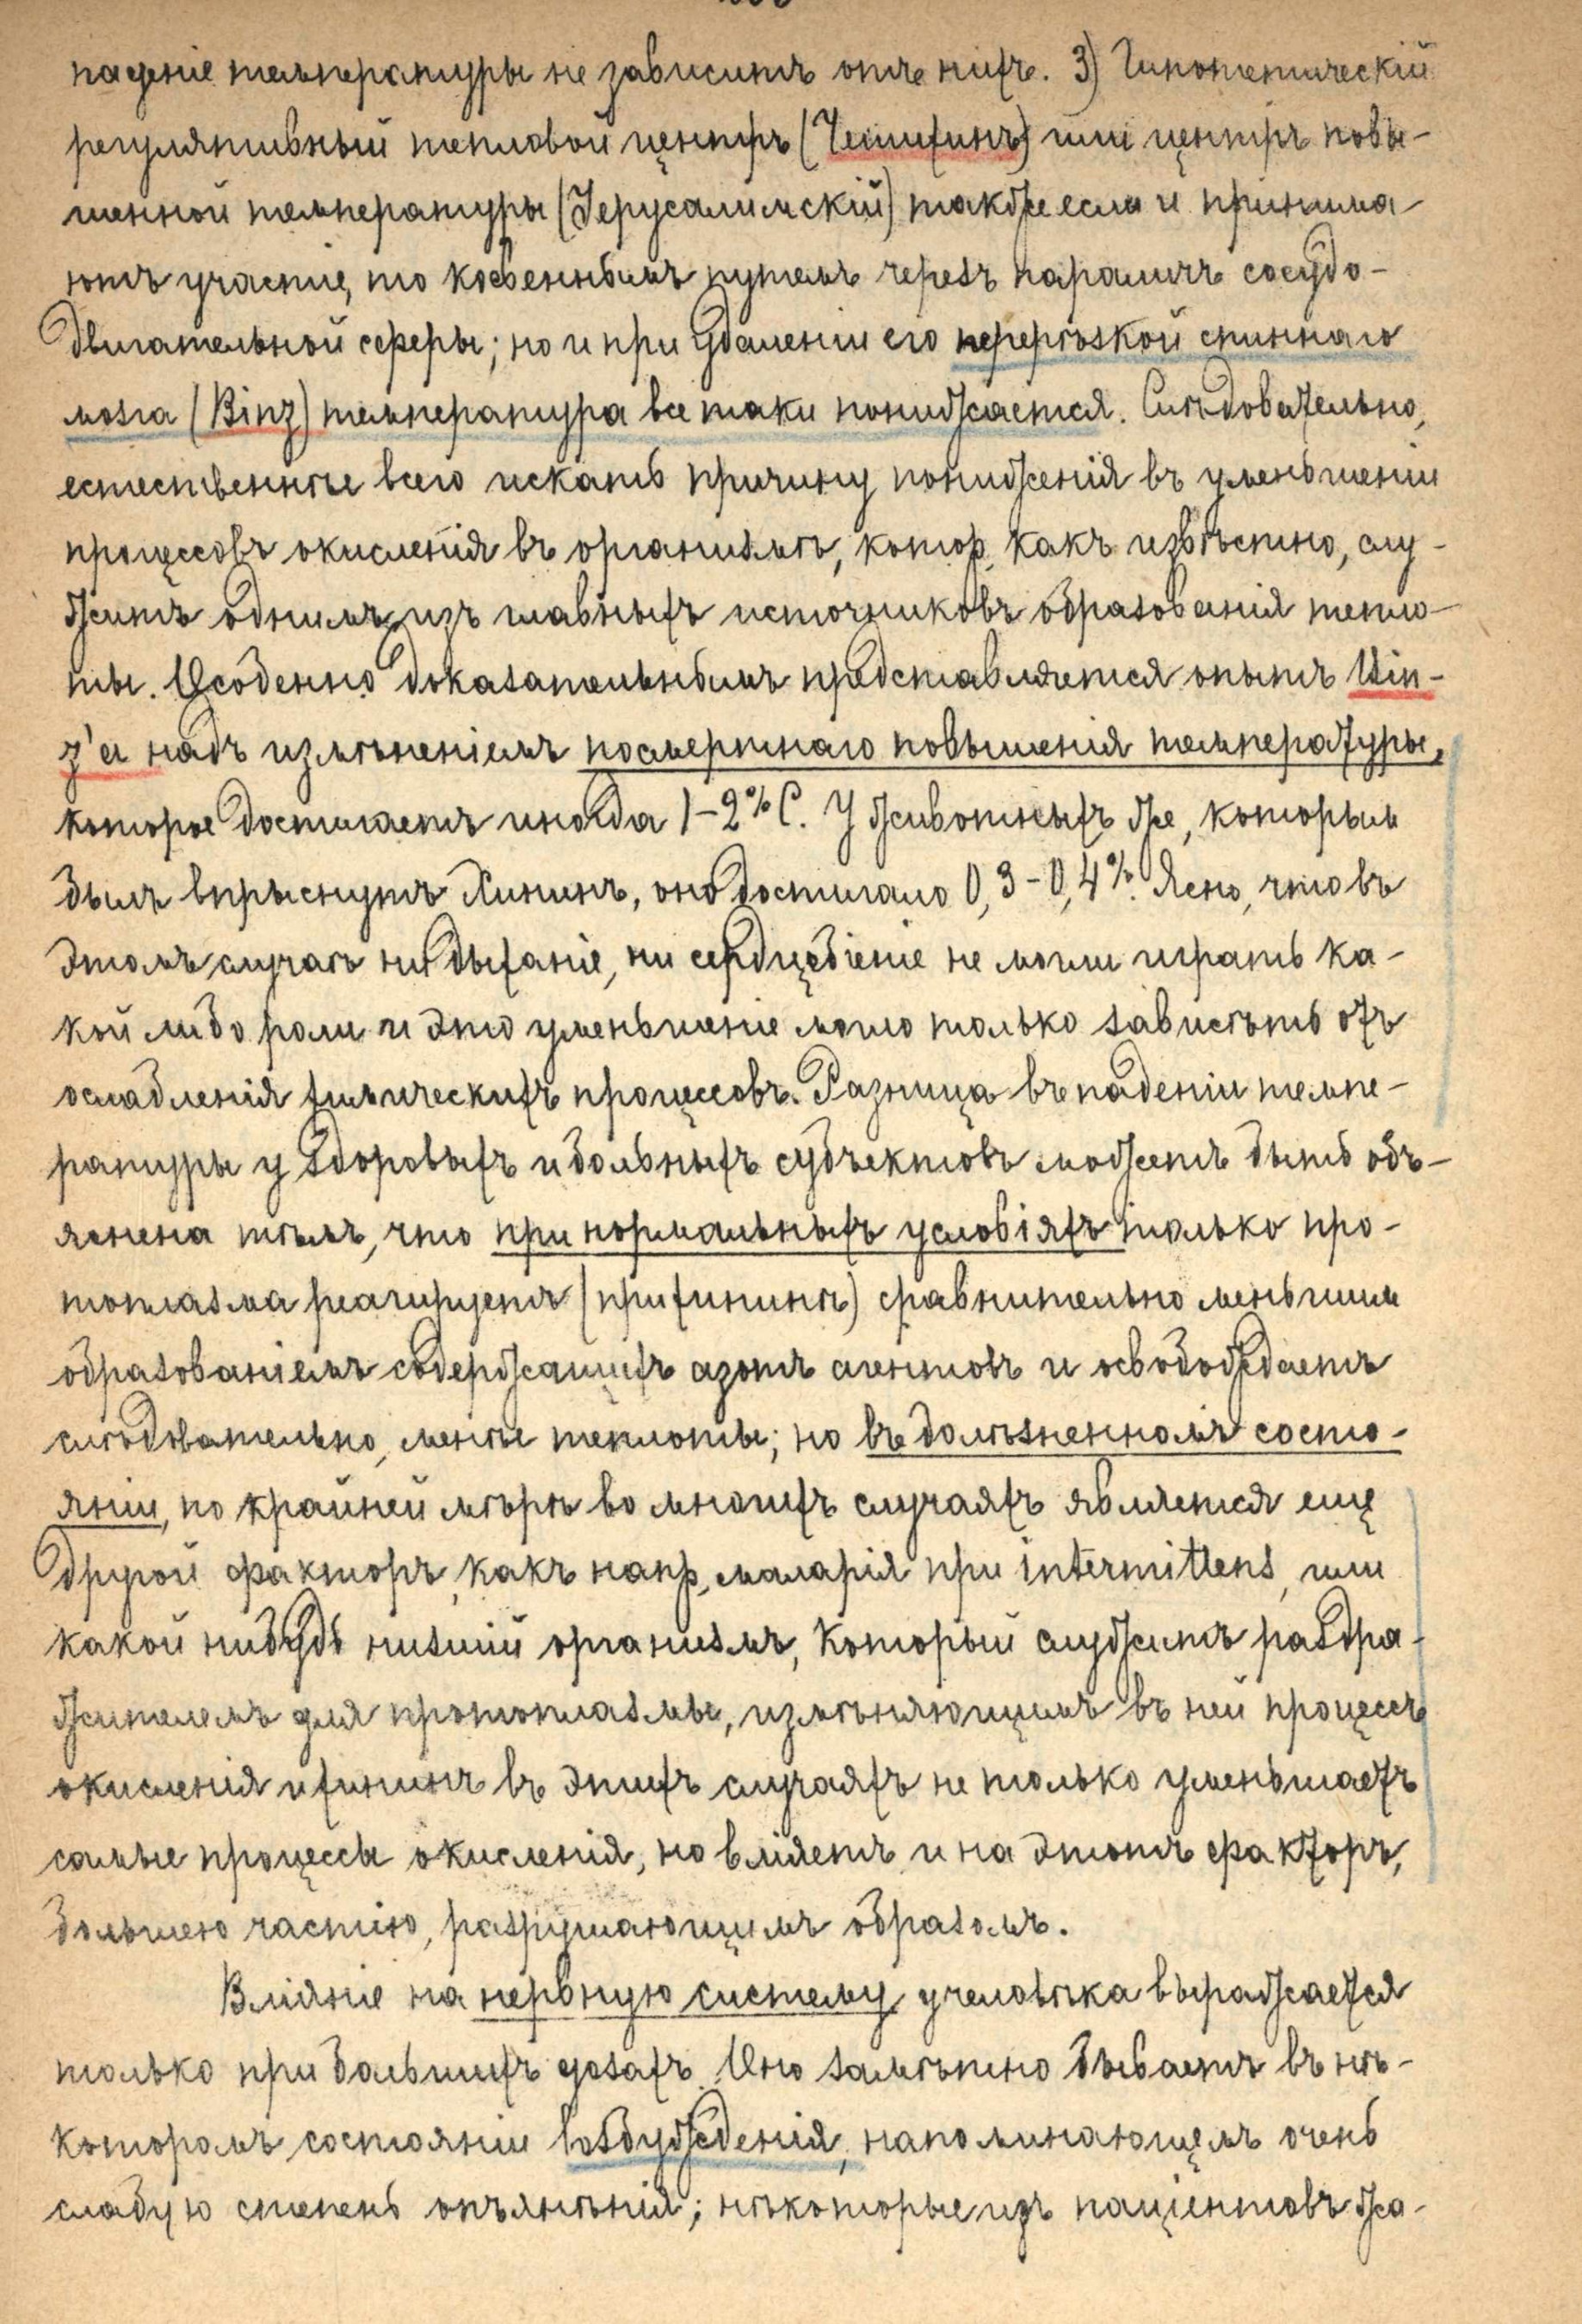 паденіе температуры не зависитъ отъ нихъ. 3) Гипотетическій
регулятивный тепловой центръ (Чешихинъ) или центръ повы-
шенной температуры (Іерусалимскій) также если и принима-
ютъ участіе, то косвеннымъ путемъ черезъ параличъ сосудо-
двигательной сферы; но и при удаленіи его перерѣзкой спиннаго
мозга (Binz) температура все таки понижается. Слѣдовательно,
естественнѣе всего искать причину пониженія въ уменьшеніи
процессовъ окисленія въ организмѣ, котор. какъ извѣстно, слу-
житъ однимъ изъ главныхъ источниковъ образованія тепло-
ты. Особенно доказательнымъ представляется опытъ Bin-
z'a надъ измѣненіемъ посмертнаго повышенія температуры,
которое достигаетъ иногда 1-2% С. У животныхъ же, которымъ
былъ впрыснутъ Хининъ, оно достигало 0,3-0,4%. Ясно, что въ
этомъ случаѣ ни дыханіе, ни сердцебіеніе не могли играть ка-
кой либо роли и это уменьшеніе могло только зависѣть отъ
ослабленія химическихъ процессовъ. Разница въ паденіи темпе-
ратуры у здоровыхъ и больныхъ субъектовъ можетъ быть объ-
яснена тѣмъ, что при нормальныхъ условіяхъ только про-
топлазма реагируетъ (при хининѣ) сравнительно меньшимъ
образованіемъ содержащихъ азотъ агентовъ и освобождаетъ
слѣдовательно, менѣе теплоты; но въ болѣзненномъ состо-
яніи, по крайней мѣрѣ во многихъ случаяхъ является еще
другой факторъ, какъ напр. маларія при intermittens, или
какой нибудь низшій организмъ, который служитъ раздра-
жителемъ для протоплазмы, измѣняющимъ въ ней процессъ
окисленія и хининъ въ этихъ случаяхъ не только уменьшаетъ
самые процессы окисленія, но вліяетъ и на этотъ факторъ,
большею частію, разрушающимъ образомъ.
Вліяніе на нервную систему у человѣка выражается
только при большихъ дозахъ. Оно замѣтно бываетъ въ нѣ-
которомъ состояніи возбужденія, напоминающемъ очень
слабую степень опъянѣнія; нѣкоторые изъ паціентовъ жа-